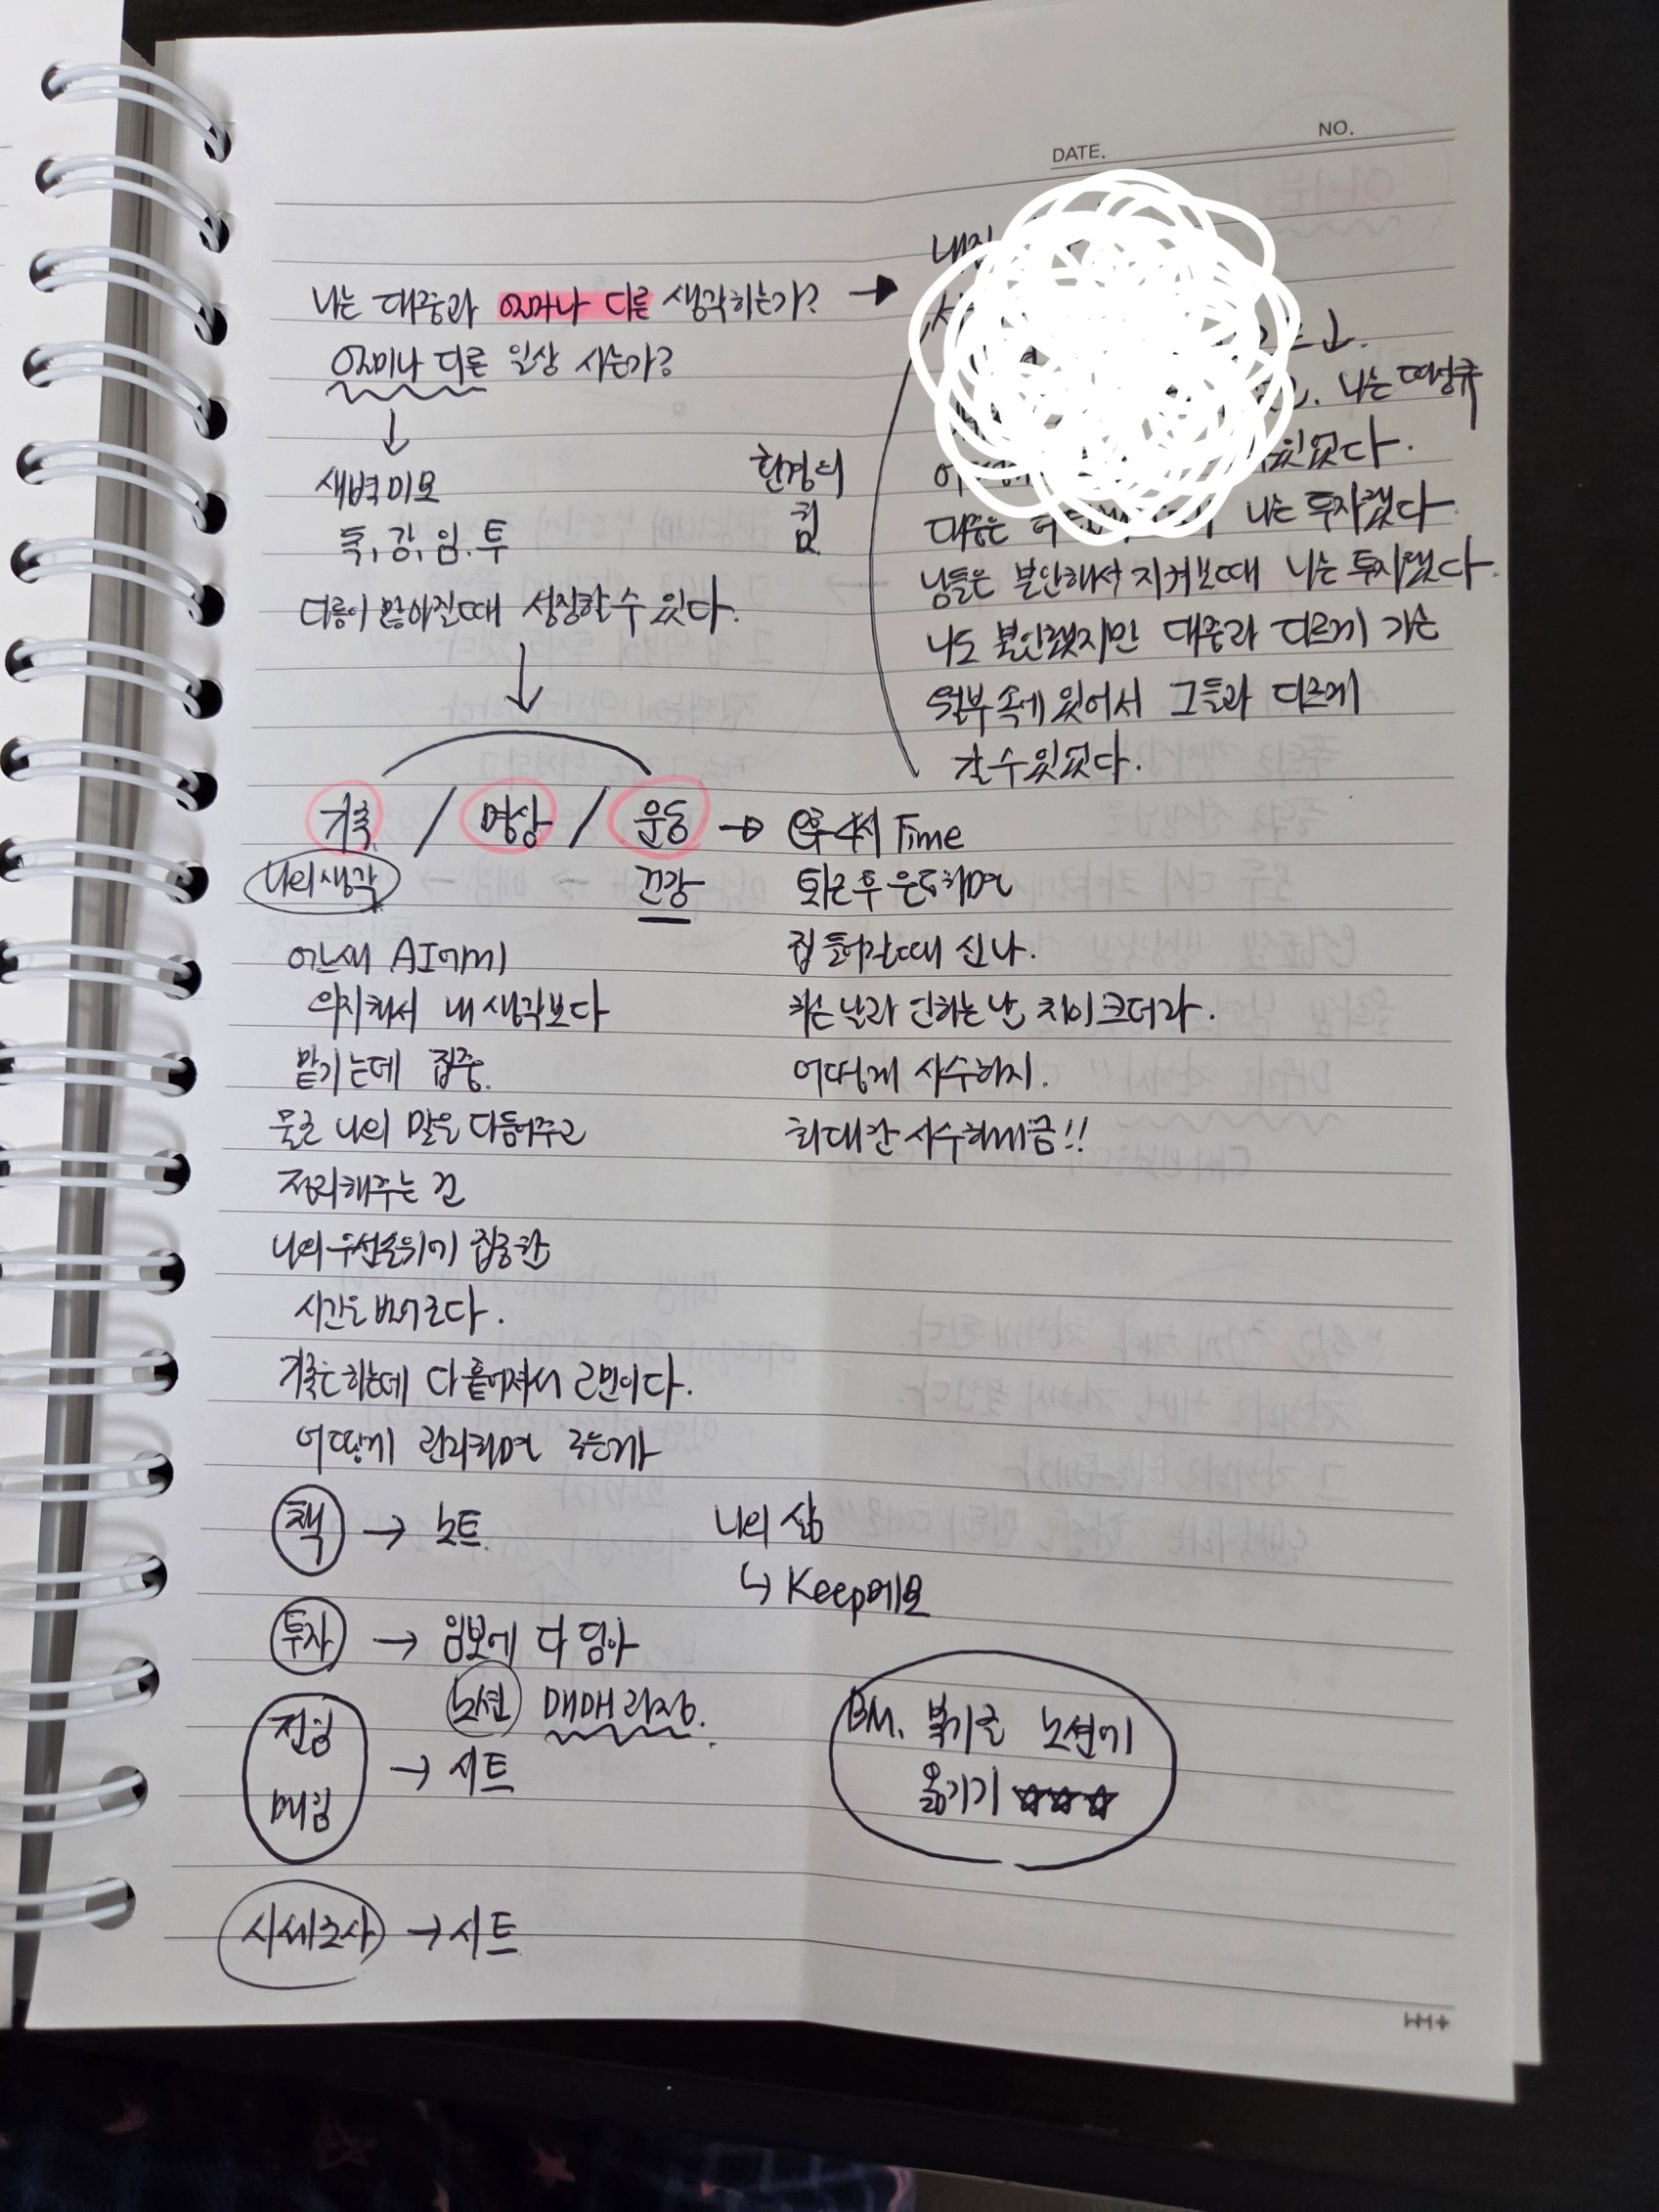 NO.
DATE.
나는 대중과 얼마나 다른 생각하는가? →
얼마나 다른 일상 사는가?
↓
새벽미모
독, 강, 임, 투
다름이 많아질때 성장할 수 있다.
↓
환경의
힘
내집
나는
있었다.
대중은 나는 투자했다
남들은 불안해서 지켜볼때 나는 투자했다.
나도 불안했지만 대중과 다르게 가는
월부 속에 있어서 그들과 다르게
갈 수 있었다.
기록 / 명상 / 운동 → 오후 4시 Time
나의 생각
건강
퇴근 후 운동하며
집 들어갈때 신나.
하는 날과 안하는 날 차이 크더라.
어떻게 사수하지.
최대한 사수해야함!!
어느새 AI에게
의지해서 내 생각보다
맡기는데 집중.
물론 나의 말을 다듬어주고
정리해주는 건
나의 우선순위에 집중할
시간을 벌어준다.
기록은 하는데 다 흩어져서 고민이다.
어떻게 관리하면 좋을까
책 → 노트
나의 삶
↳ Keep메모
투자 → 임보에 다 담아
노션 매매과정.
전임
매임
→ 시트
BM. 복기글 노션에
옮기기 ☆☆☆
시세조사 → 시트